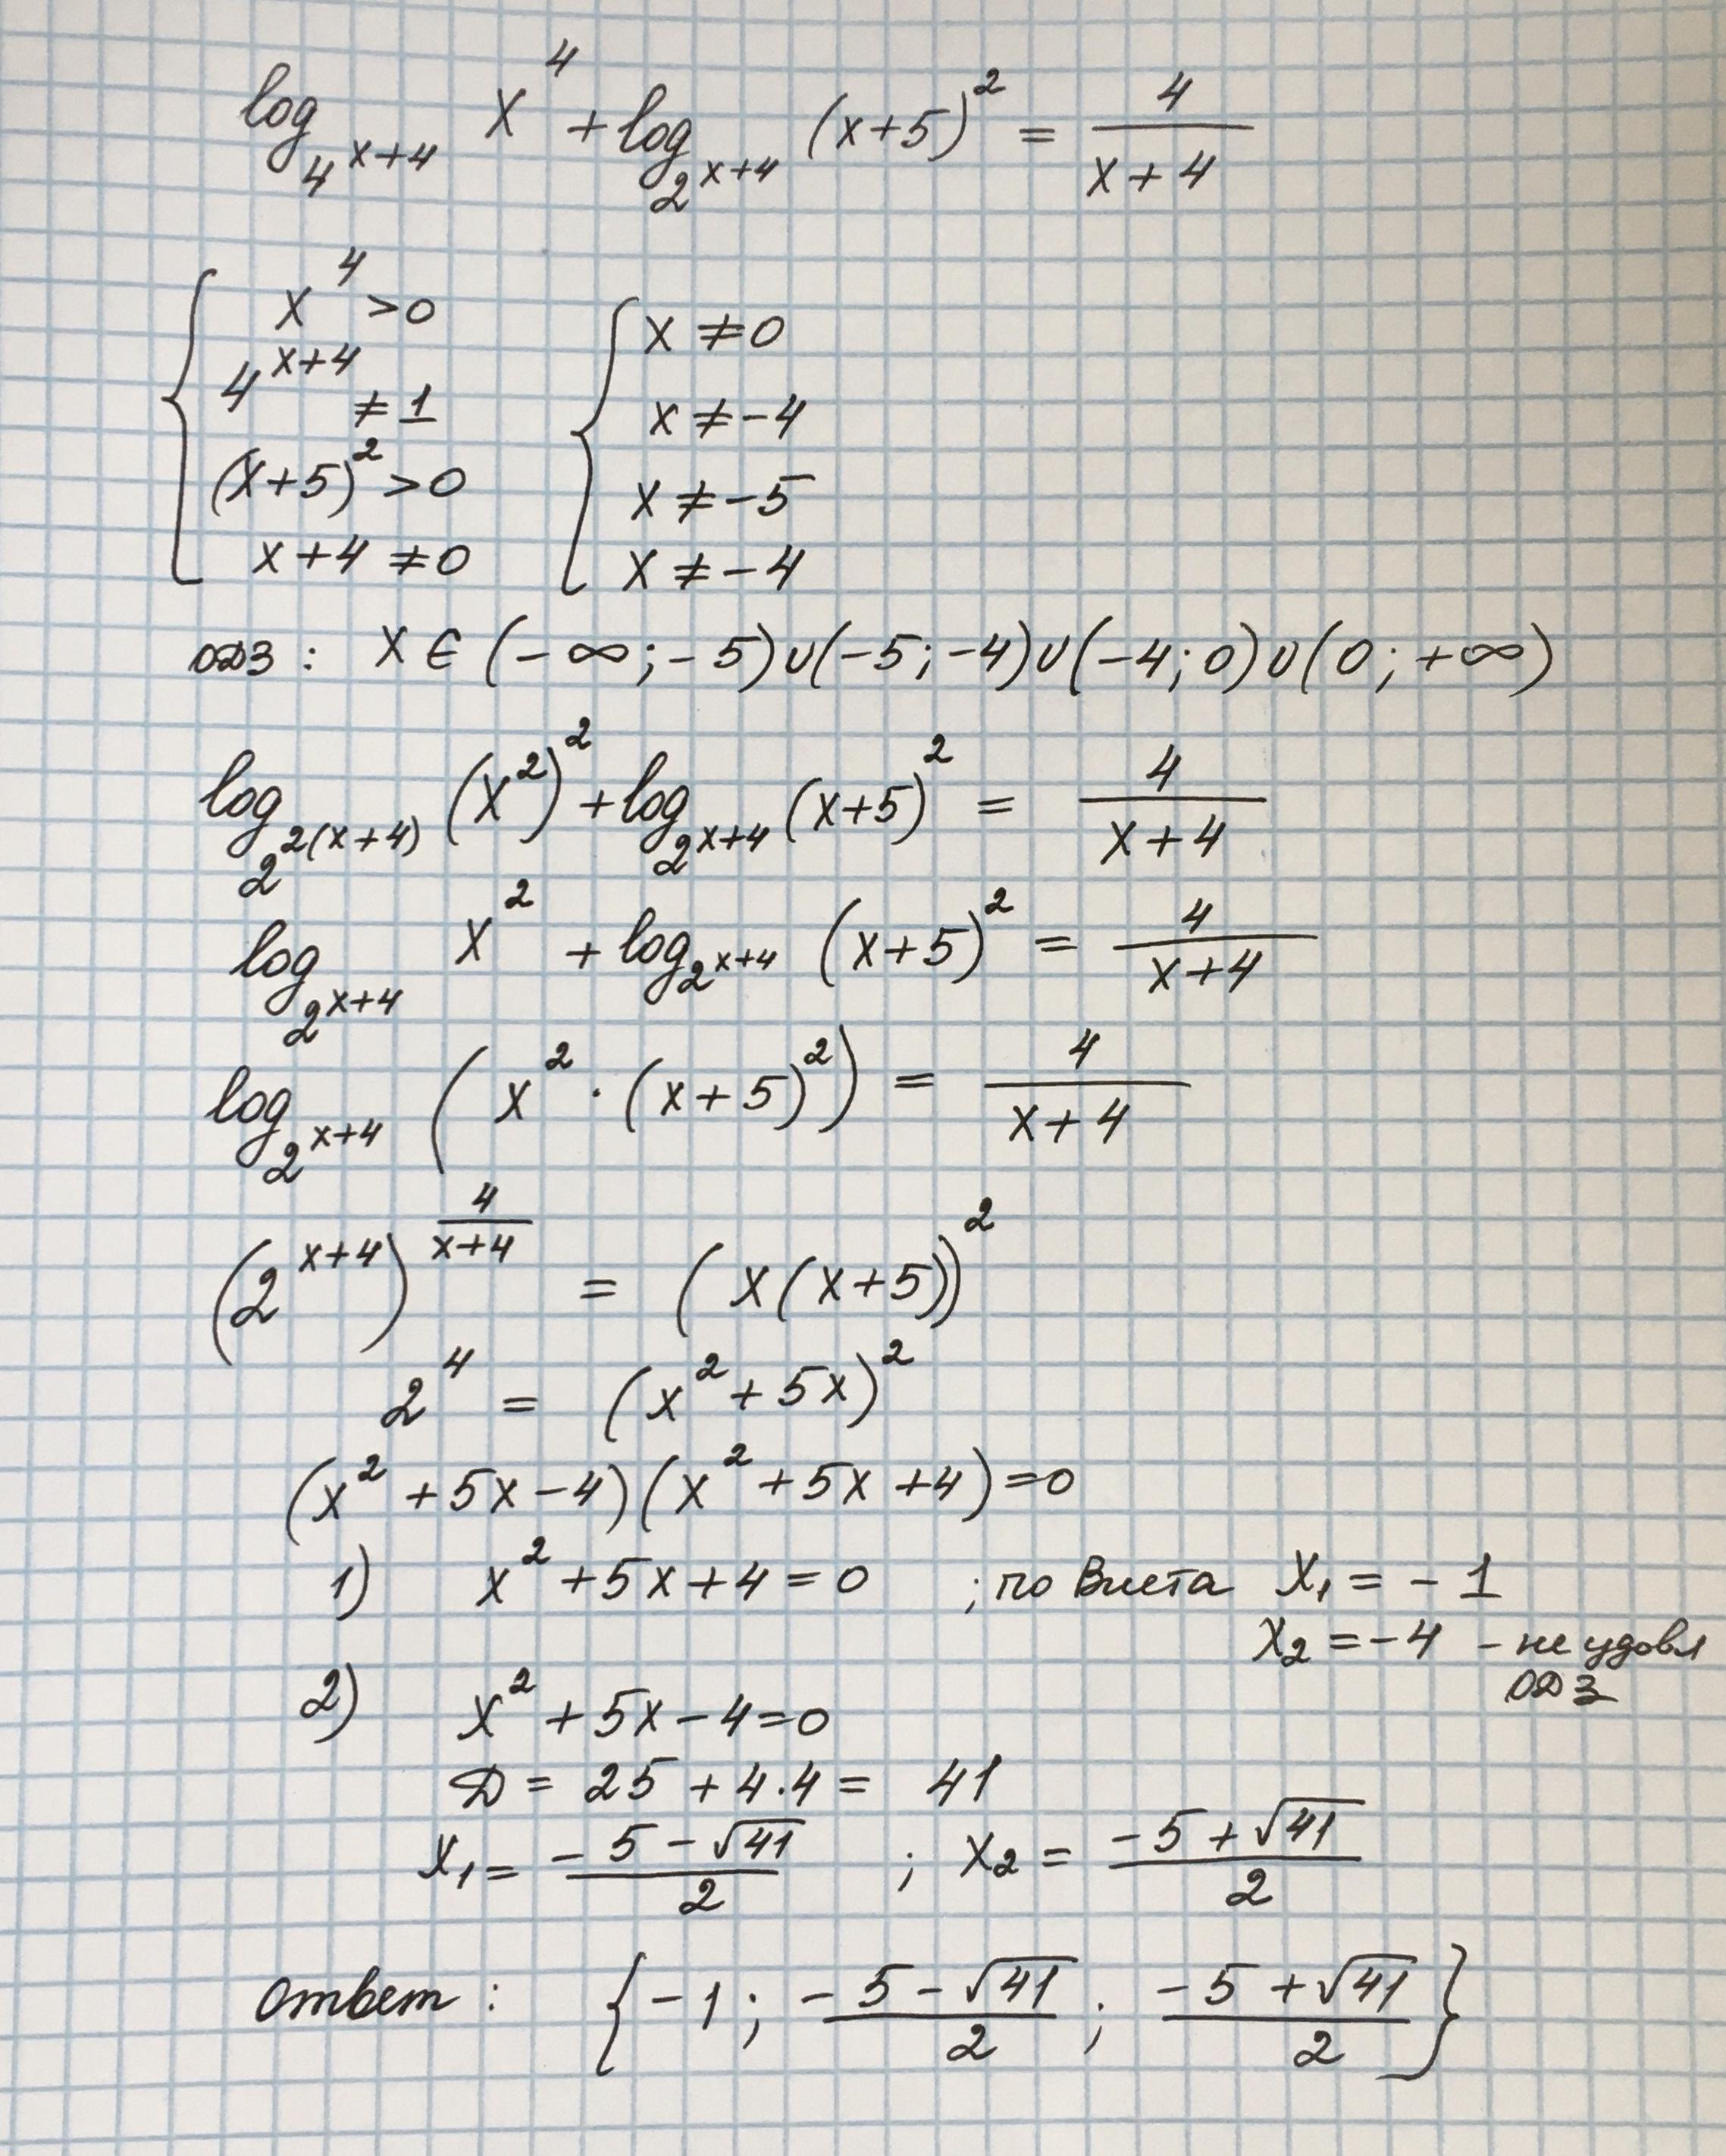 log_{4^{x+4}} x^4 + log_{2^{x+4}} (x+5)^2 = \frac{4}{x+4}
{ x^4 > 0 { x ≠ 0
4^{x+4} ≠ 1 x ≠ -4
(x+5)^2 > 0 x ≠ -5
x+4 ≠ 0 x ≠ -4
ОДЗ : x ∈ (-∞; -5) ∪ (-5; -4) ∪ (-4; 0) ∪ (0; +∞)
log_{2^{2(x+4)}} (x^2)^2 + log_{2^{x+4}} (x+5)^2 = \frac{4}{x+4}
log_{2^{x+4}} x^2 + log_{2^{x+4}} (x+5)^2 = \frac{4}{x+4}
log_{2^{x+4}} (x^2 · (x+5)^2) = \frac{4}{x+4}
(2^{x+4})^{\frac{4}{x+4}} = (x(x+5))^2
2^4 = (x^2 + 5x)^2
(x^2 + 5x - 4)(x^2 + 5x + 4) = 0
1) x^2 + 5x + 4 = 0 ; по Виета x_1 = -1
x_2 = -4 - не удовл
ОДЗ
2) x^2 + 5x - 4 = 0
D = 25 + 4·4 = 41
x_1 = \frac{-5-\sqrt{41}}{2} ; x_2 = \frac{-5+\sqrt{41}}{2}
Ответ : {-1; \frac{-5-\sqrt{41}}{2}; \frac{-5+\sqrt{41}}{2}}